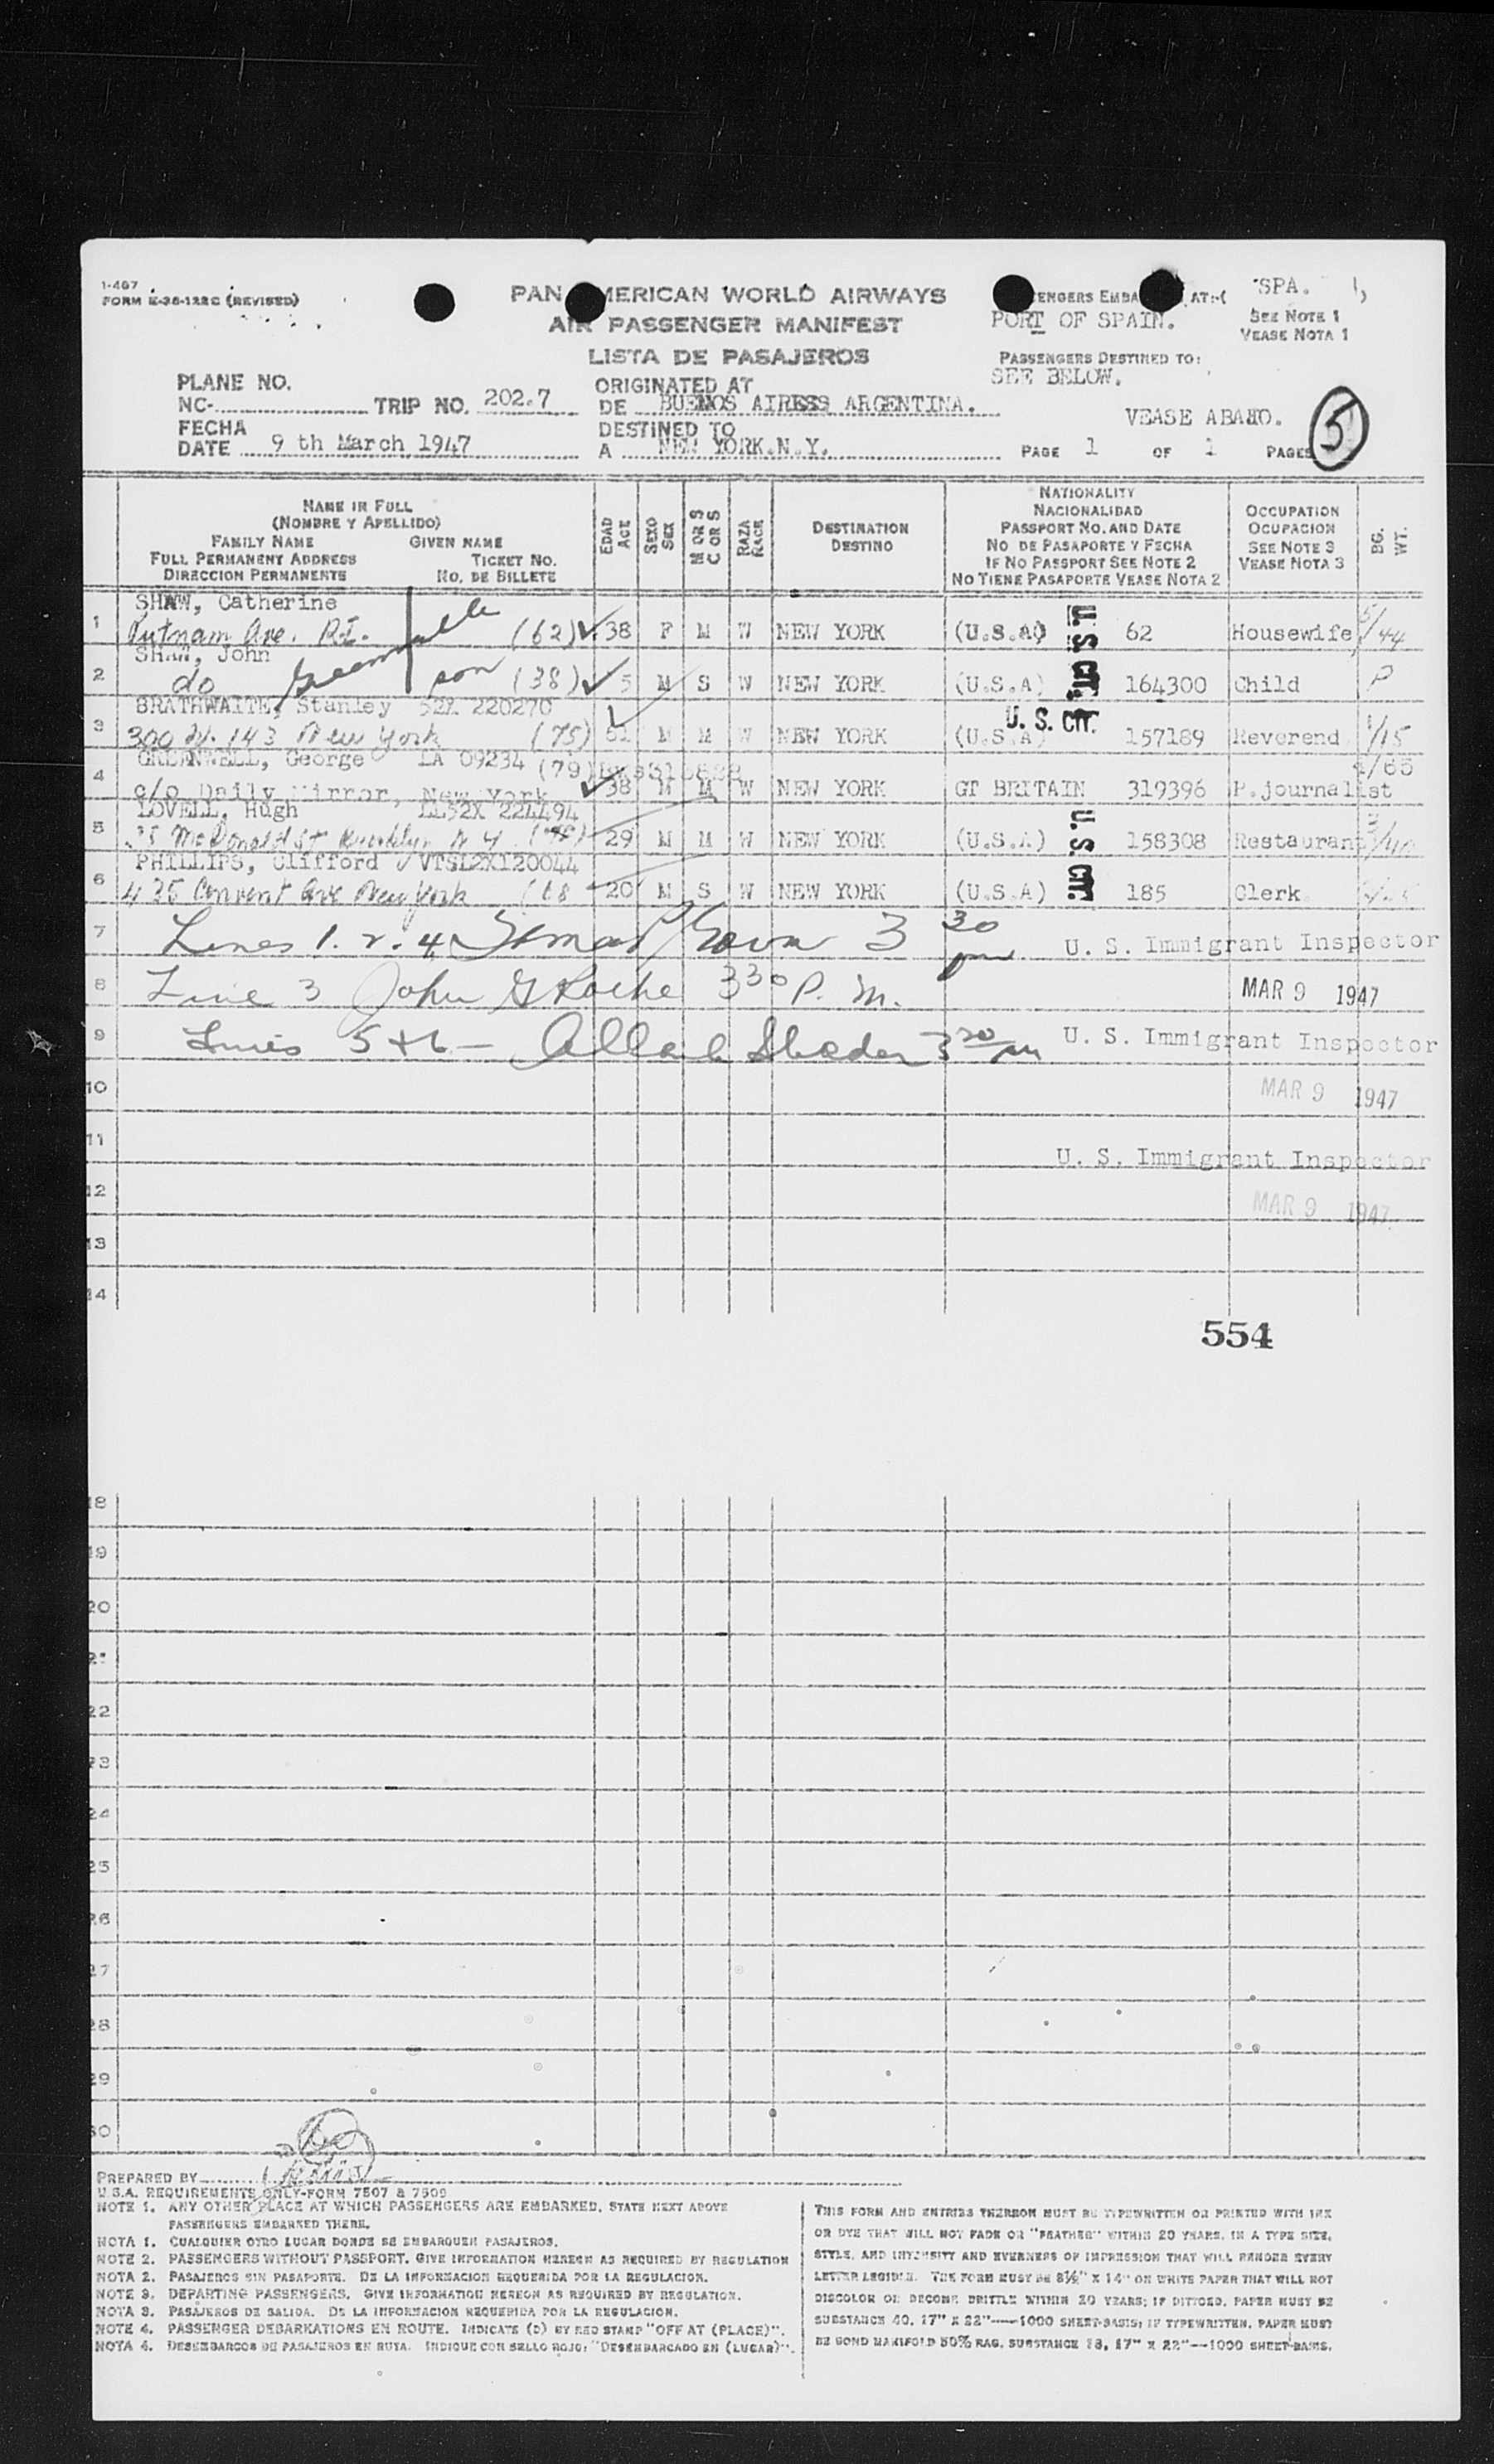 I-467
FORM E-36-122C (REVISED)
PAN AMERICAN WORLD AIRWAYS
AIR PASSENGER MANIFEST
LISTA DE PASAJEROS
PASSENGERS EMBARKED AT:
SPA.
PORT OF SPAIN.
SEE NOTE 1
VEASE NOTA 1
PASSENGERS DESTINED TO:
SEE BELOW.
PLANE NO.
NC- TRIP NO. 202.7
ORIGINATED AT
DE BUENOS AIRES ARGENTINA.
VEASE ABAJO.
5
FECHA
DATE 9 th March 1947
DESTINED TO
A NEW YORK.N.Y.
PAGE 1 OF 1 PAGES
NAME IN FULL
(NOMBRE Y APELLIDO)
FAMILY NAME GIVEN NAME
FULL PERMANENT ADDRESS TICKET NO.
DIRECCION PERMANENTE NO. DE BILLETE
EDAD AGE
SEXO SEX
M OR S C OR S
RAZA RACE
DESTINATION
DESTINO
NATIONALITY
NACIONALIDAD
PASSPORT NO. AND DATE
NO DE PASAPORTE Y FECHA
IF NO PASSPORT SEE NOTE 2
NO TIENE PASAPORTE VEASE NOTA 2
OCCUPATION
OCUPACION
SEE NOTE 3
VEASE NOTA 3
BG. WT.
SHAW, Catherine
1 Putnam Ave. R.I. (62) 38 F M W NEW YORK (U.S.A) U. S. CIT. 62 Housewife 5/44
SHAW, John
2 do Greenville son (38) 5 M S W NEW YORK (U.S.A) 164300 Child P
BRATHWAITE, Stanley 52X 220270
3 300 W. 143 New York (75) 61 M M W NEW YORK (U.S.A) U. S. CIT. 157189 Reverend 1/15
GREENWELL, George LA 09234 (79)
4 c/o Daily Mirror, New York 38 M M W NEW YORK GT BRITAIN 319396 P.journalist /65
LOVELL, Hugh LL52X 224494
5 McDonald St Brooklyn N Y 29 M M W NEW YORK (U.S.A) U. S. CIT. 158308 Restaurant
PHILLIPS, Clifford VTSL2X120044
6 435 Convent Ave New York (68 20 M S W NEW YORK (U.S.A) 185 Clerk
7 Lines 1. 2. 4 3 30 pm U. S. Immigrant Inspector
8 Line 3 John G Roche 3 30 P. M. MAR 9 1947
9 Lines 5 + 6 - 3 30 pm U. S. Immigrant Inspector
10 MAR 9 1947
11 U. S. Immigrant Inspector
12 MAR 9 1947
13
14
554
18
19
20
21
22
23
24
25
26
27
28
29
30
PREPARED BY
U.S.A. REQUIREMENTS ONLY-FORM 7507 & 7509
NOTE 1. ANY OTHER PLACE AT WHICH PASSENGERS ARE EMBARKED, STATE NEXT ABOVE
PASSENGERS EMBARKED THERE.
NOTA 1. CUALQUIER OTRO LUGAR DONDE SE EMBARQUEN PASAJEROS.
NOTE 2. PASSENGERS WITHOUT PASSPORT. GIVE INFORMATION HEREON AS REQUIRED BY REGULATION
NOTA 2. PASAJEROS SIN PASAPORTE. DE LA INFORMACION REQUERIDA POR LA REGULACION.
NOTE 3. DEPARTING PASSENGERS. GIVE INFORMATION HEREON AS REQUIRED BY REGULATION.
NOTA 3. PASAJEROS DE SALIDA. DE LA INFORMACION REQUERIDA POR LA REGULACION.
NOTE 4. PASSENGER DEBARKATIONS EN ROUTE. INDICATE (D) BY RED STAMP "OFF AT (PLACE)".
NOTA 4. DESEMBARCOS DE PASAJEROS EN RUTA. INDIQUE CON SELLO ROJO: "DESEMBARCADO EN (LUGAR)".
THIS FORM AND ENTRIES THEREON MUST BE TYPEWRITTEN OR PRINTED WITH INK
OR DYE THAT WILL NOT FADE OR "FEATHER" WITHIN 20 YEARS, IN A TYPE SIZE,
STYLE, AND INTENSITY AND EVENNESS OF IMPRESSION THAT WILL RENDER EVERY
LETTER LEGIBLE. THE FORM MUST BE 8½" X 14" ON WHITE PAPER THAT WILL NOT
DISCOLOR OR BECOME BRITTLE WITHIN 20 YEARS; IF DITTOED, PAPER MUST BE
SUBSTANCE 40, 17" X 22"—1000 SHEET-BASIS; IF TYPEWRITTEN, PAPER MUST
BE BOND MANIFOLD 50% RAG, SUBSTANCE 18, 17" X 22"—1000 SHEET-BASIS.